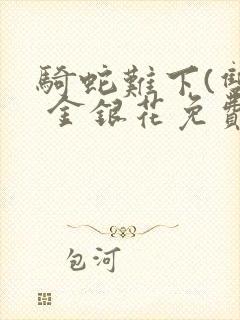 騎蛇難下(雙
金銀花免費
包河